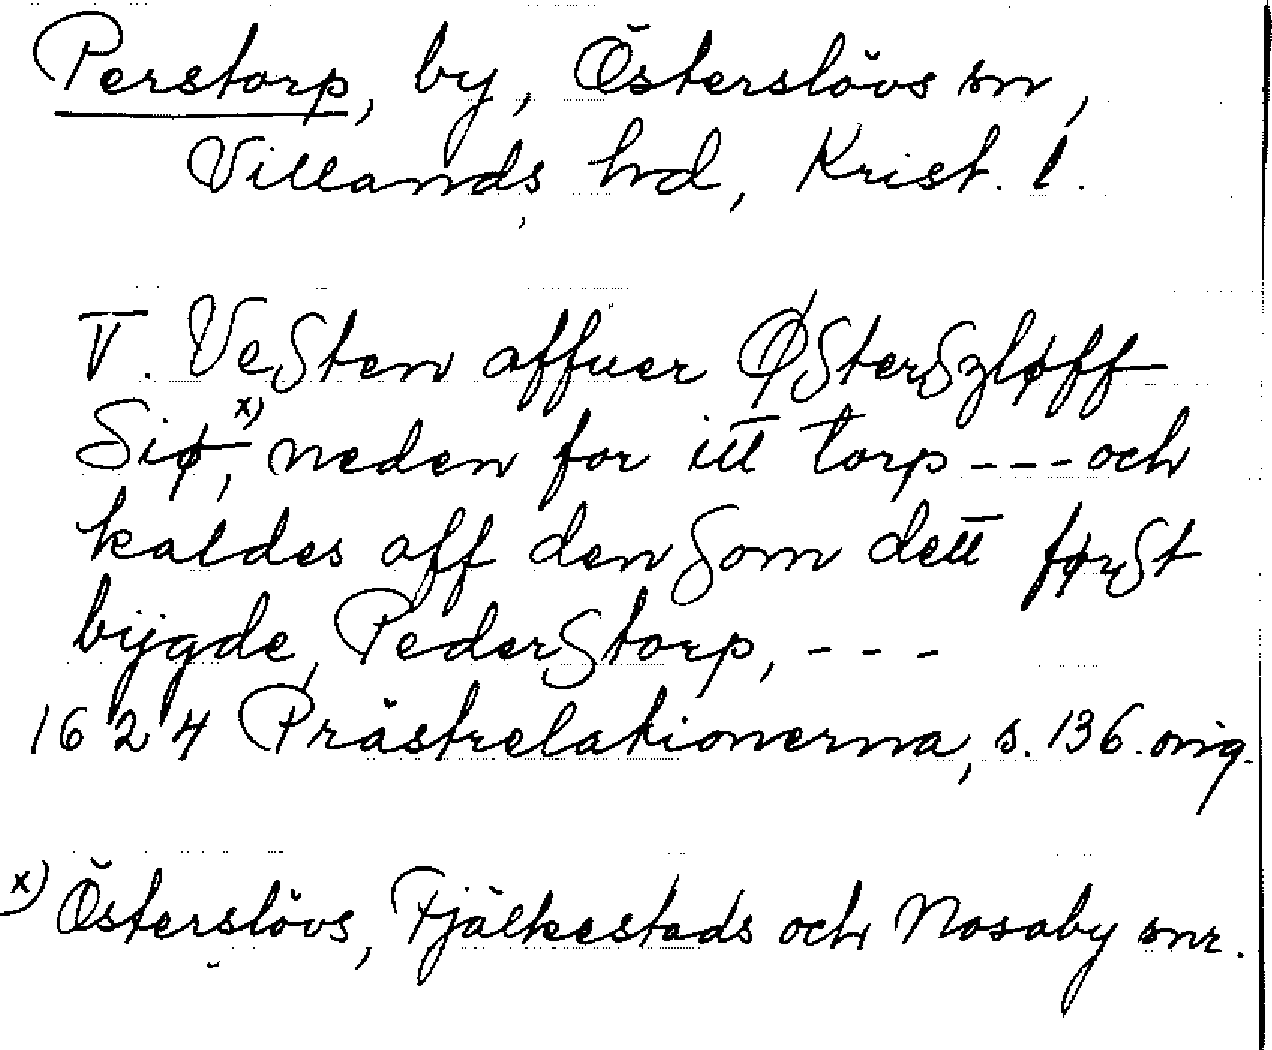 Perstorp, by, Österslövs sn,
Villands hd, Krist. l.
V. Vesten affuer Østerszløff
Siø,x) neden for itt torp --- och
kaldes aff den som dett først
bÿgde, Pederstorp, - - -
1624 Prästrelationerna, s. 136. orig.
x) Österslövs, Fjälkestads och Nosaby snr.